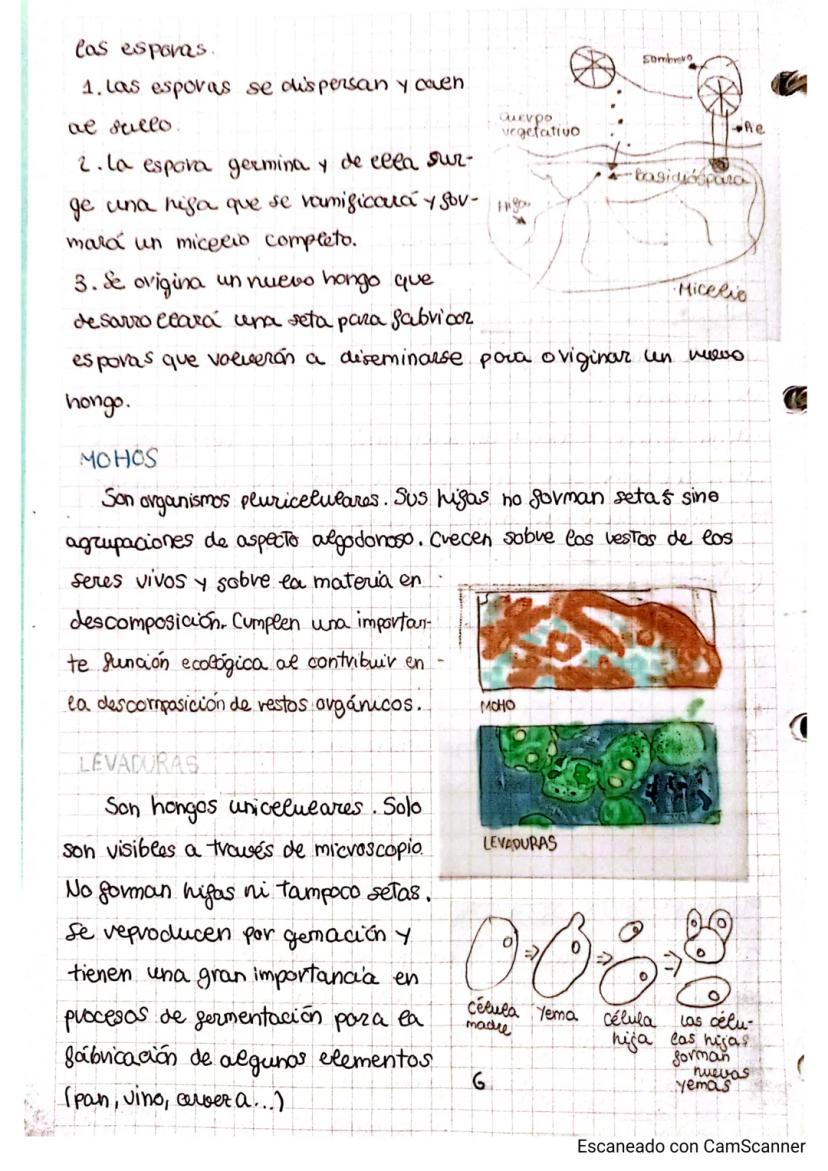 las esporas.
1. Las esporas se dispersan y caen
al suelo.
2. La espora germina y de ella sur-
ge una hifa que se ramificará y for-
mará un micelio completo.
3. Se origina un nuevo hongo que
desarrollará una seta para fabricar
esporas que volverán a diseminarse para originar un nuevo
hongo.
Sombrero
Cuerpo
vegetativo
Pie
basidióspora
Hifa
Micelio
MOHOS
Son organismos pluricelulares. Sus hifas no forman setas sino
agrupaciones de aspecto algodonoso. Crecen sobre los restos de los
seres vivos y sobre la materia en
descomposición. Cumplen una importan-
te función ecológica al contribuir en
la descomposición de restos orgánicos.
MOHO
LEVADURAS
LEVADURAS
Son hongos unicelulares. Solo
son visibles a través de microscopio.
No forman hifas ni tampoco setas.
Se reproducen por gemación y
tienen una gran importancia en
procesos de fermentación para la
fabricación de algunos elementos
(pan, vino, cerveza...)
Célula
madre
Yema
célula
hija
Las célu-
las hijas
forman
nuevas
yemas
6
Escaneado con CamScanner